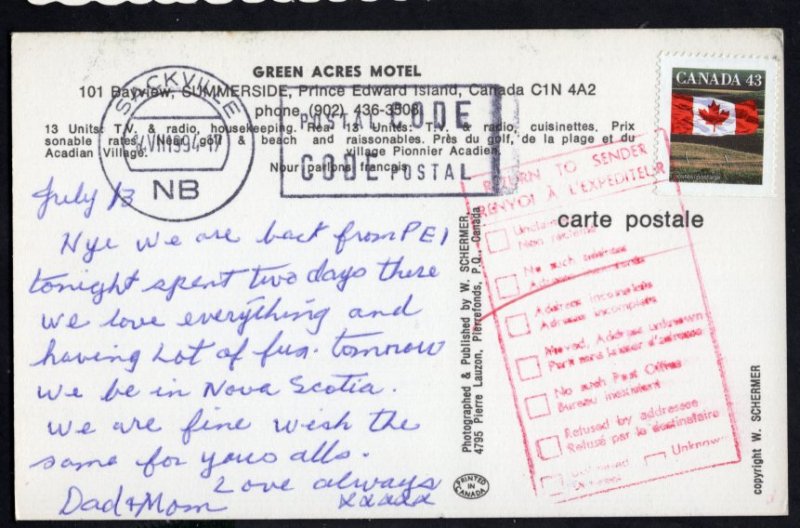 GREEN ACRES MOTEL
101 Bayview, SUMMERSIDE, Prince Edward Island, Canada C1N 4A2
phone (902) 436-3508
13 Units: T.V. & radio, housekeeping. Rea 13 Units: T.V. & radio, cuisinettes. Prix
sonable rates. Near golf & beach and raisonnables. Près du golf, de la plage et du
Acadian Village. village Pionnier Acadien.
Nous parlons français
SACKVILLE
1994
NB
POSTAL CODE
CODE POSTAL
CANADA 43
RETURN TO SENDER
RENVOI À L'EXPÉDITEUR
Unclaimed
Non réclamé
No such address
Address incomplete
Adresse incomplète
Moved, Address unknown
Parti sans laisser d'adresse
No such Post Office
Bureau inexistant
Refused by addressee
Refusé par le destinataire
Unknown
carte postale
Photographed & Published by W. SCHERMER,
4795 Pierre Lauzon, Pierrefonds, P.Q., Canada
PRINTED
IN
CANADA
copyright W. SCHERMER
July 13
Hye we are back from PEI
tonight spent two days there
we love everything and
having Lot of fun. tomrow
we be in Nova Scotia.
We are fine wish the
same for yous alls.
Love always
Dad & Mom xxxxx